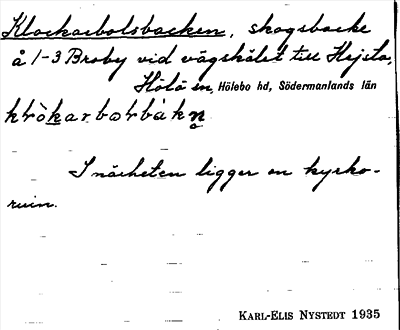 Klockarbolsbacken, skogsbacke
å 1-3 Broby vid vägskälet till Hejsta,
Hölö sn, Hölebo hd, Södermanlands län
I närheten ligger en kyrko-
ruin.
KARL-ELIS NYSTEDT 1935